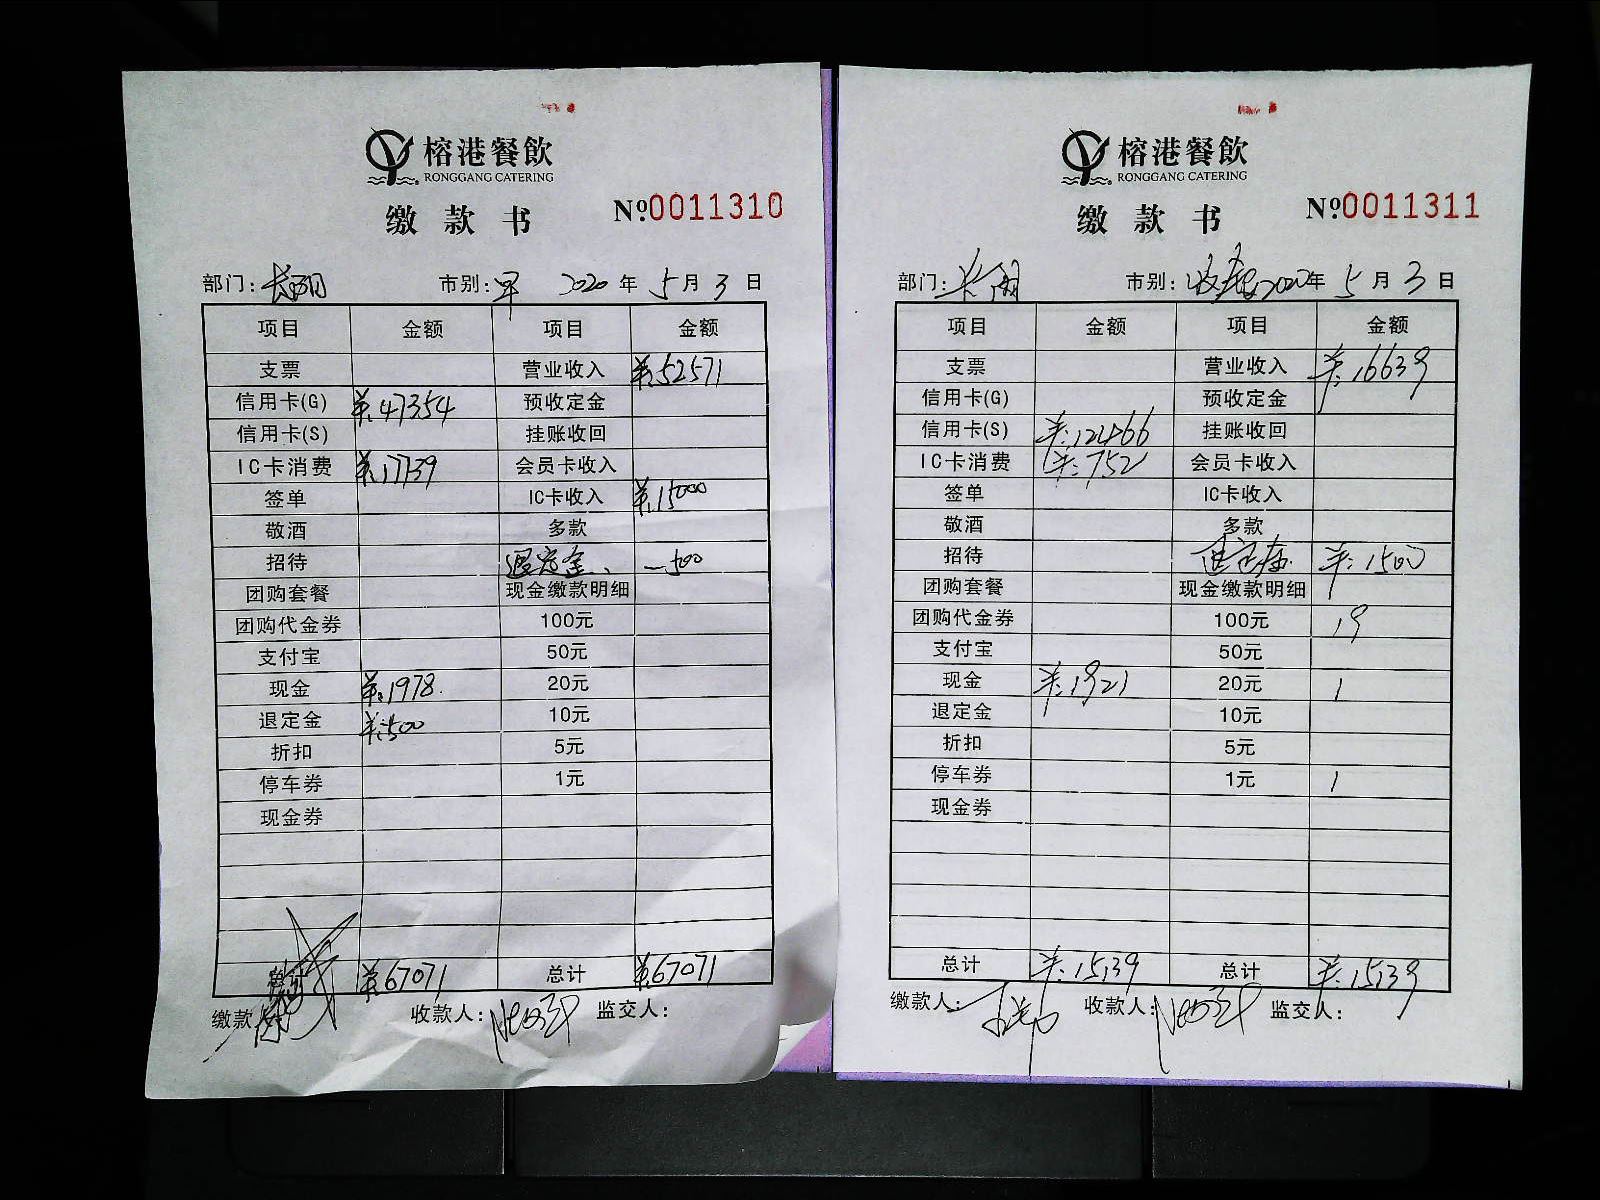 榕港餐飲
RONGGANG CATERING
缴款书 №0011310
部门: 市别:早 2020年5月3日
项目 金额 项目 金额
支票 营业收入 ¥:52571
信用卡(G) ¥:47354 预收定金
信用卡(S) 挂账收回
IC卡消费 ¥:17739 会员卡收入
签单 IC卡收入 ¥:15000
敬酒 多款
招待 退定金 -500
团购套餐 现金缴款明细
团购代金券 100元
支付宝 50元
现金 ¥:1978 20元
退定金 ¥:500 10元
折扣 5元
停车券 1元
现金券
总计 ¥:67071 总计 ¥:67071
缴款 收款人: 监交人:
榕港餐飲
RONGGANG CATERING
缴款书 №0011311
部门: 市别: 2020年5月3日
项目 金额 项目 金额
支票 营业收入 ¥:16639
信用卡(G) 预收定金
信用卡(S) ¥:12466 挂账收回
IC卡消费 ¥:752 会员卡收入
签单 IC卡收入
敬酒 多款
招待 ¥:1500
团购套餐 现金缴款明细
团购代金券 100元 19
支付宝 50元
现金 ¥:1921 20元 1
退定金 10元
折扣 5元
停车券 1元 1
现金券
总计 ¥:15139 总计 ¥:15139
缴款人: 收款人: 监交人: